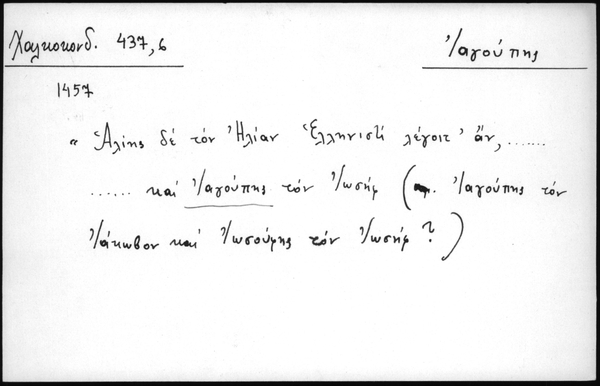 Χαλκοκονδ. 437,6
Ἰαγούπης
1457
" Ἀλίης δὲ τὸν Ἠλίαν Ἑλληνιστὶ λέγοιτ' ἄν, .......
...... καὶ Ἰαγούπης τὸν Ἰωσήφ ( Ἰαγούπης τὸν
Ἰάκωβον καὶ Ἰωσούφης τὸν Ἰωσήφ ? )